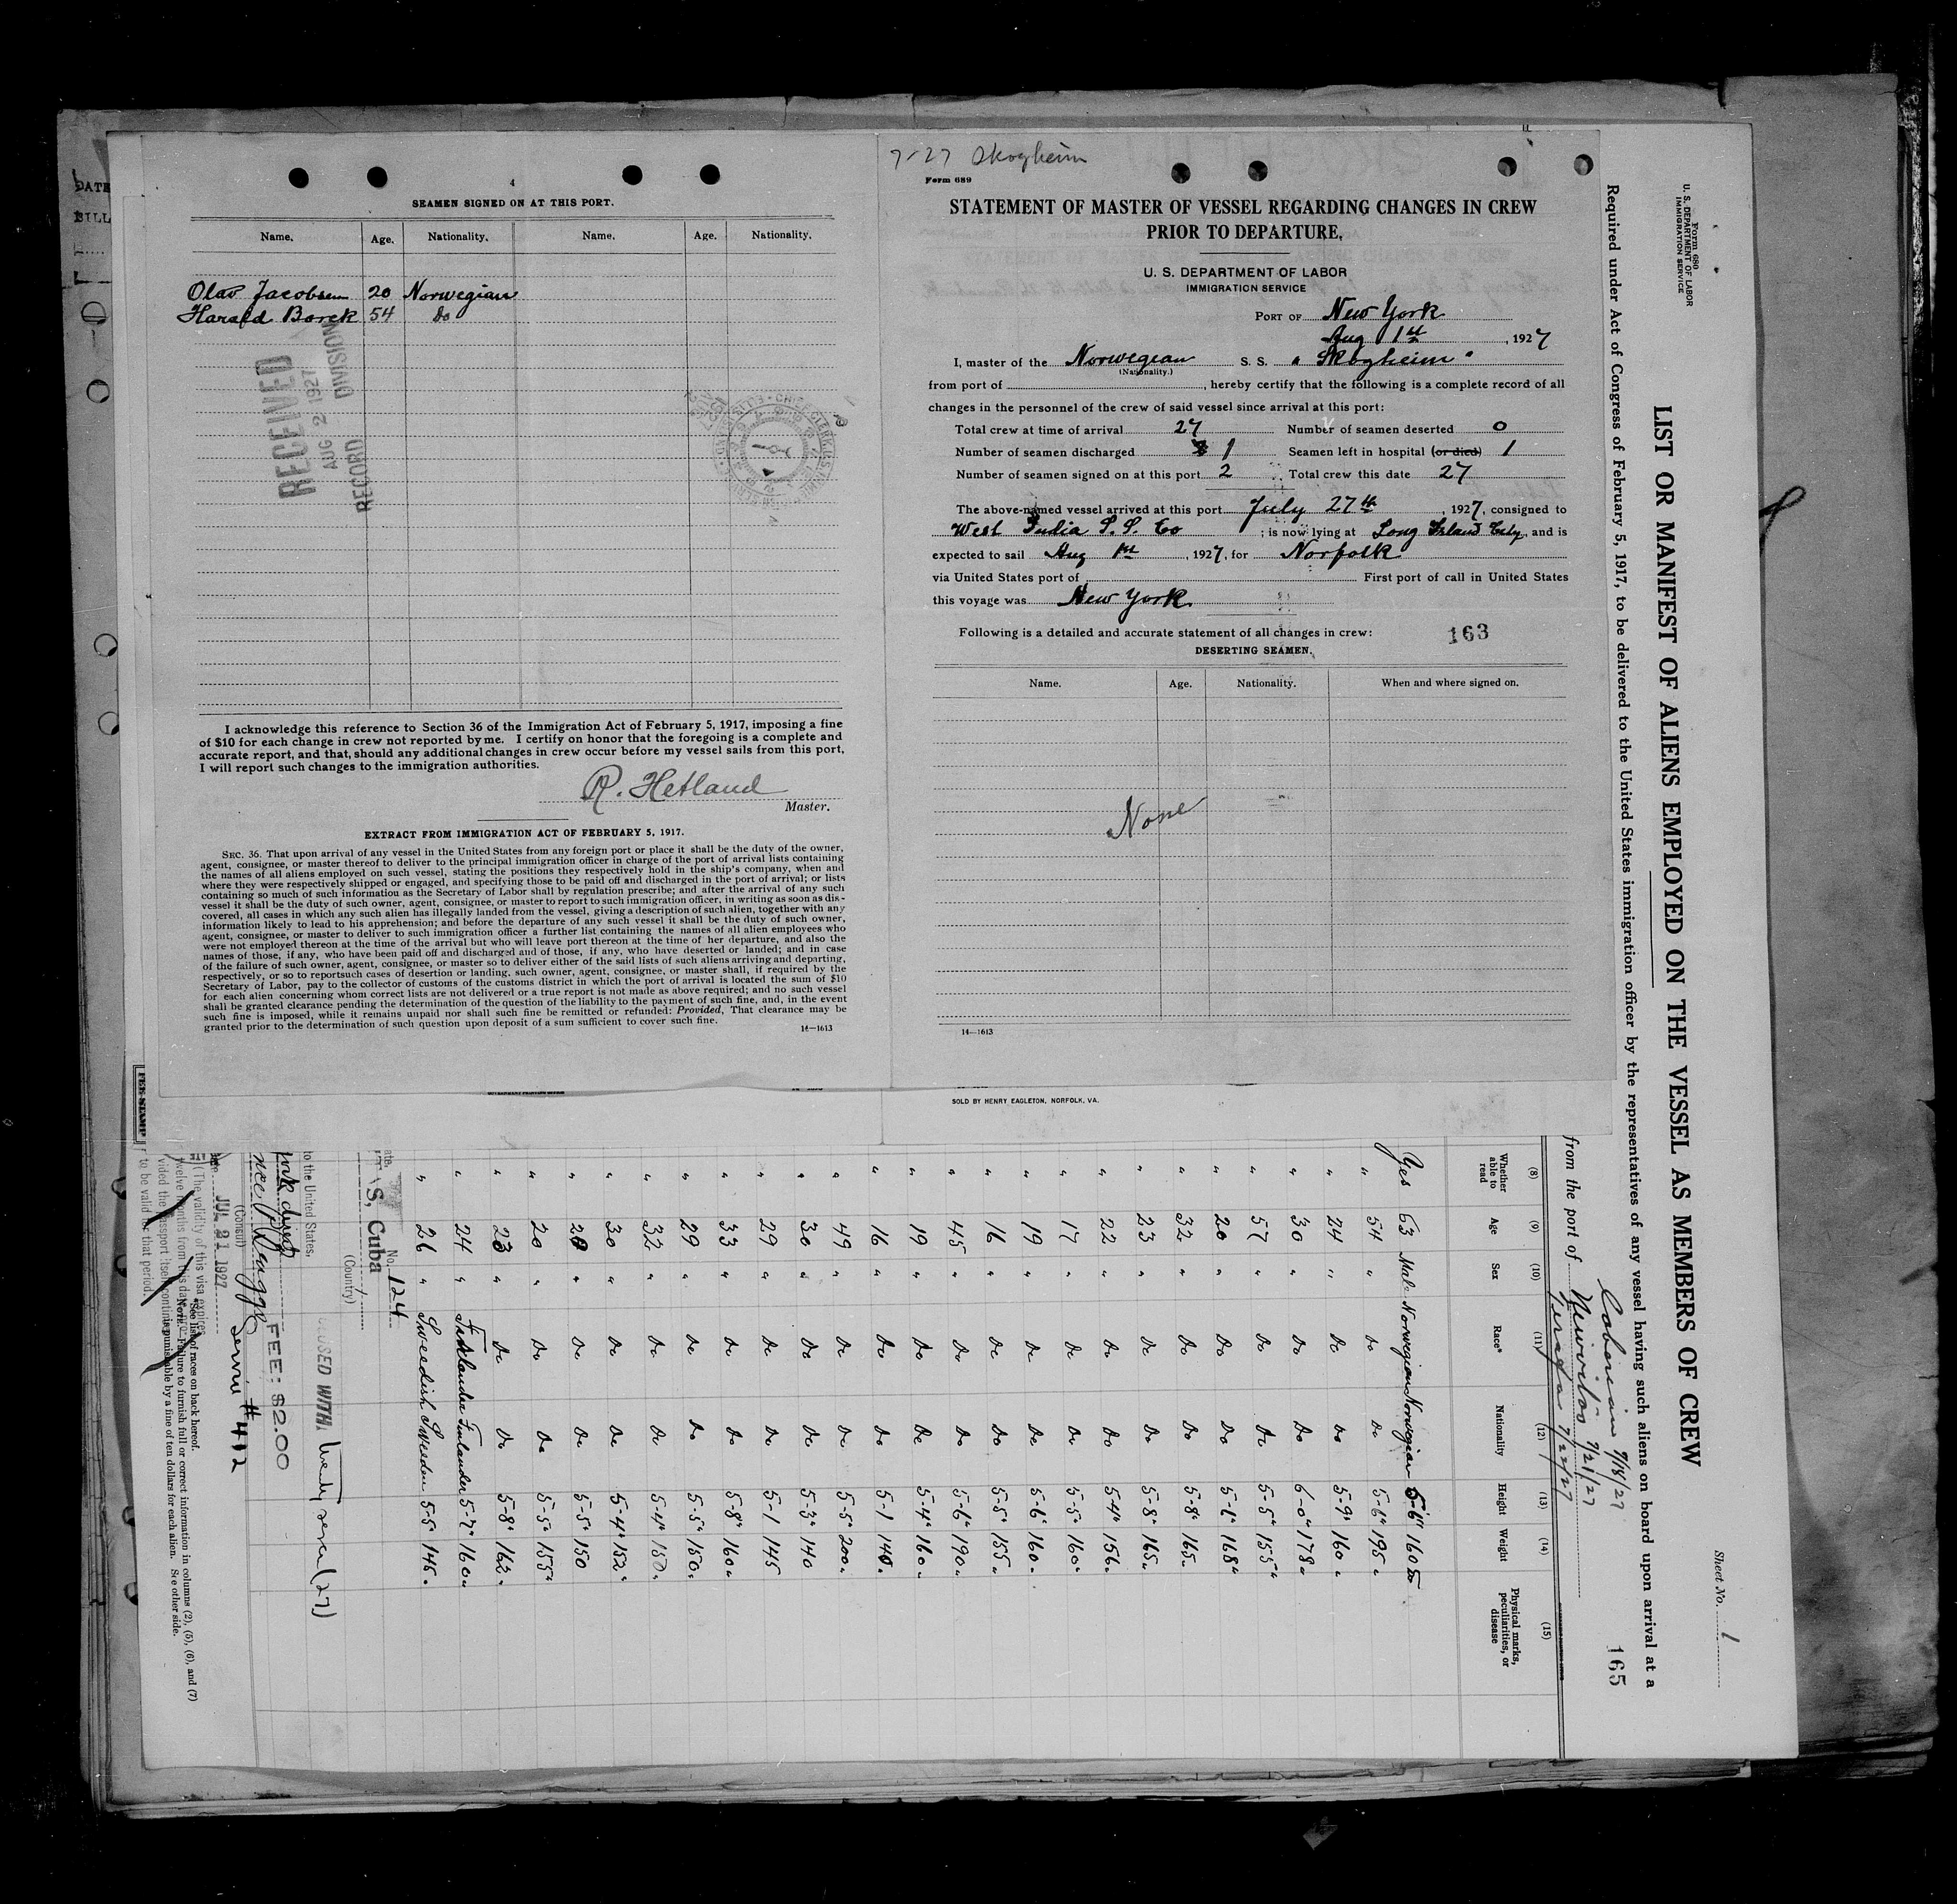 DATE
BILL
4
SEAMEN SIGNED ON AT THIS PORT.
Name. Age. Nationality. Name. Age. Nationality.
Olav Jacobsen 20 Norwegian
Harald Borck 54 Do
RECEIVED
AUG 2 1927
RECORD DIVISION
I acknowledge this reference to Section 36 of the Immigration Act of February 5, 1917, imposing a fine
of $10 for each change in crew not reported by me. I certify on honor that the foregoing is a complete and
accurate report, and that, should any additional changes in crew occur before my vessel sails from this port,
I will report such changes to the immigration authorities.
R. Hetland
Master.
EXTRACT FROM IMMIGRATION ACT OF FEBRUARY 5, 1917.
SEC. 36. That upon arrival of any vessel in the United States from any foreign port or place it shall be the duty of the owner,
agent, consignee, or master thereof to deliver to the principal immigration officer in charge of the port of arrival lists containing
the names of all aliens employed on such vessel, stating the positions they respectively hold in the ship's company, when and
where they were respectively shipped or engaged, and specifying those to be paid off and discharged in the port of arrival; or lists
containing so much of such information as the Secretary of Labor shall by regulation prescribe; and after the arrival of any such
vessel it shall be the duty of such owner, agent, consignee, or master to report to such immigration officer, in writing as soon as dis-
covered, all cases in which any such alien has illegally landed from the vessel, giving a description of such alien, together with any
information likely to lead to his apprehension; and before the departure of any such vessel it shall be the duty of such owner,
agent, consignee, or master to deliver to such immigration officer a further list containing the names of all alien employees who
were not employed thereon at the time of the arrival but who will leave port thereon at the time of her departure, and also the
names of those, if any, who have been paid off and discharged and of those, if any, who have deserted or landed; and in case
of the failure of such owner, agent, consignee, or master so to deliver either of the said lists of such aliens arriving and departing,
respectively, or so to reportsuch cases of desertion or landing, such owner, agent, consignee, or master shall, if required by the
Secretary of Labor, pay to the collector of customs of the customs district in which the port of arrival is located the sum of $10
for each alien concerning whom correct lists are not delivered or a true report is not made as above required; and no such vessel
shall be granted clearance pending the determination of the question of the liability to the payment of such fine, and, in the event
such fine is imposed, while it remains unpaid nor shall such fine be remitted or refunded: Provided, That clearance may be
granted prior to the determination of such question upon deposit of a sum sufficient to cover such fine.
14—1613
7-27 Skogheim
Form 689
STATEMENT OF MASTER OF VESSEL REGARDING CHANGES IN CREW
PRIOR TO DEPARTURE,
U. S. DEPARTMENT OF LABOR
IMMIGRATION SERVICE
PORT OF New York
Aug 1st, 1927
I, master of the Norwegian S. S. "Skogheim"
(Nationality.)
from port of , hereby certify that the following is a complete record of all
changes in the personnel of the crew of said vessel since arrival at this port:
Total crew at time of arrival 27 Number of seamen deserted 0
Number of seamen discharged 1 Seamen left in hospital (or died) 1
Number of seamen signed on at this port 2 Total crew this date 27
The above-named vessel arrived at this port July 27th, 1927, consigned to
West India S.S. Co ; is now lying at Long Island City, and is
expected to sail Aug 1st, 1927, for Norfolk
via United States port of First port of call in United States
this voyage was New York
Following is a detailed and accurate statement of all changes in crew: 163
DESERTING SEAMEN.
Name. Age. Nationality. When and where signed on.
None
14—1613
SOLD BY HENRY EAGLETON, NORFOLK, VA.
Form 680
U. S. DEPARTMENT OF LABOR
IMMIGRATION SERVICE
Sheet No. 1
LIST OR MANIFEST OF ALIENS EMPLOYED ON THE VESSEL AS MEMBERS OF CREW
Required under Act of Congress of February 5, 1917, to be delivered to the United States immigration officer by the representatives of any vessel having such aliens on board upon arrival at a
165
7/18/27
from the port of Nuevitas 7/21/27
7/22/27
(8) (9) (10) (11) (12) (13) (14) (15)
Whether able to read Age Sex Race* Nationality Height Weight Physical marks, peculiarities, or disease
Yes 63 Male Norwegian Norwegian 5-6" 160
" 54 " Do Do 5-6" 195
" 24 " Do Do 5-9" 160
" 30 " Do Do 6-0" 178
" 57 " Do Do 5-5" 155
" 20 " Do Do 5-6" 168
" 32 " Do Do 5-8" 165
" 23 " Do Do 5-8" 165
" 22 " Do Do 5-4" 156
" 17 " Do Do 5-5" 160
" 19 " Do Do 5-6" 160
" 16 " Do Do 5-5" 155
" 45 " Do Do 5-6" 190
" 19 " Do Do 5-4" 160
" 16 " Do Do 5-1 140
" 49 " Do Do 5-5" 200
" 30 " Do Do 5-3" 140
" 29 " Do Do 5-1 145
" 33 " Do Do 5-8" 160
" 29 " Do Do 5-5" 150
" 32 " Do Do 5-4" 150
" 30 " Do Do 5-4" 152
" 20 " Do Do 5-5" 150
" 20 " Do Do 5-5" 155
" 23 " Do Do 5-8" 162
" 24 " Finlander Finlander 5-7" 160
" 26 " Swedish Sweden 5-5" 146
No. 124
S, Cuba
(Country)
to the United States,
CLOSED WITH twenty seven (27)
FEE: $2.00
(Consul) Service # 412
JUL 21 1927
(The validity of this visa expires
twelve months from this date
*See list of races on back hereof.
NOTE.—Failure to furnish full or correct information in columns (2), (5), (6), and (7)
is punishable by a fine of ten dollars for each alien. See other side.
to be valid for that period.
FEE STAMP